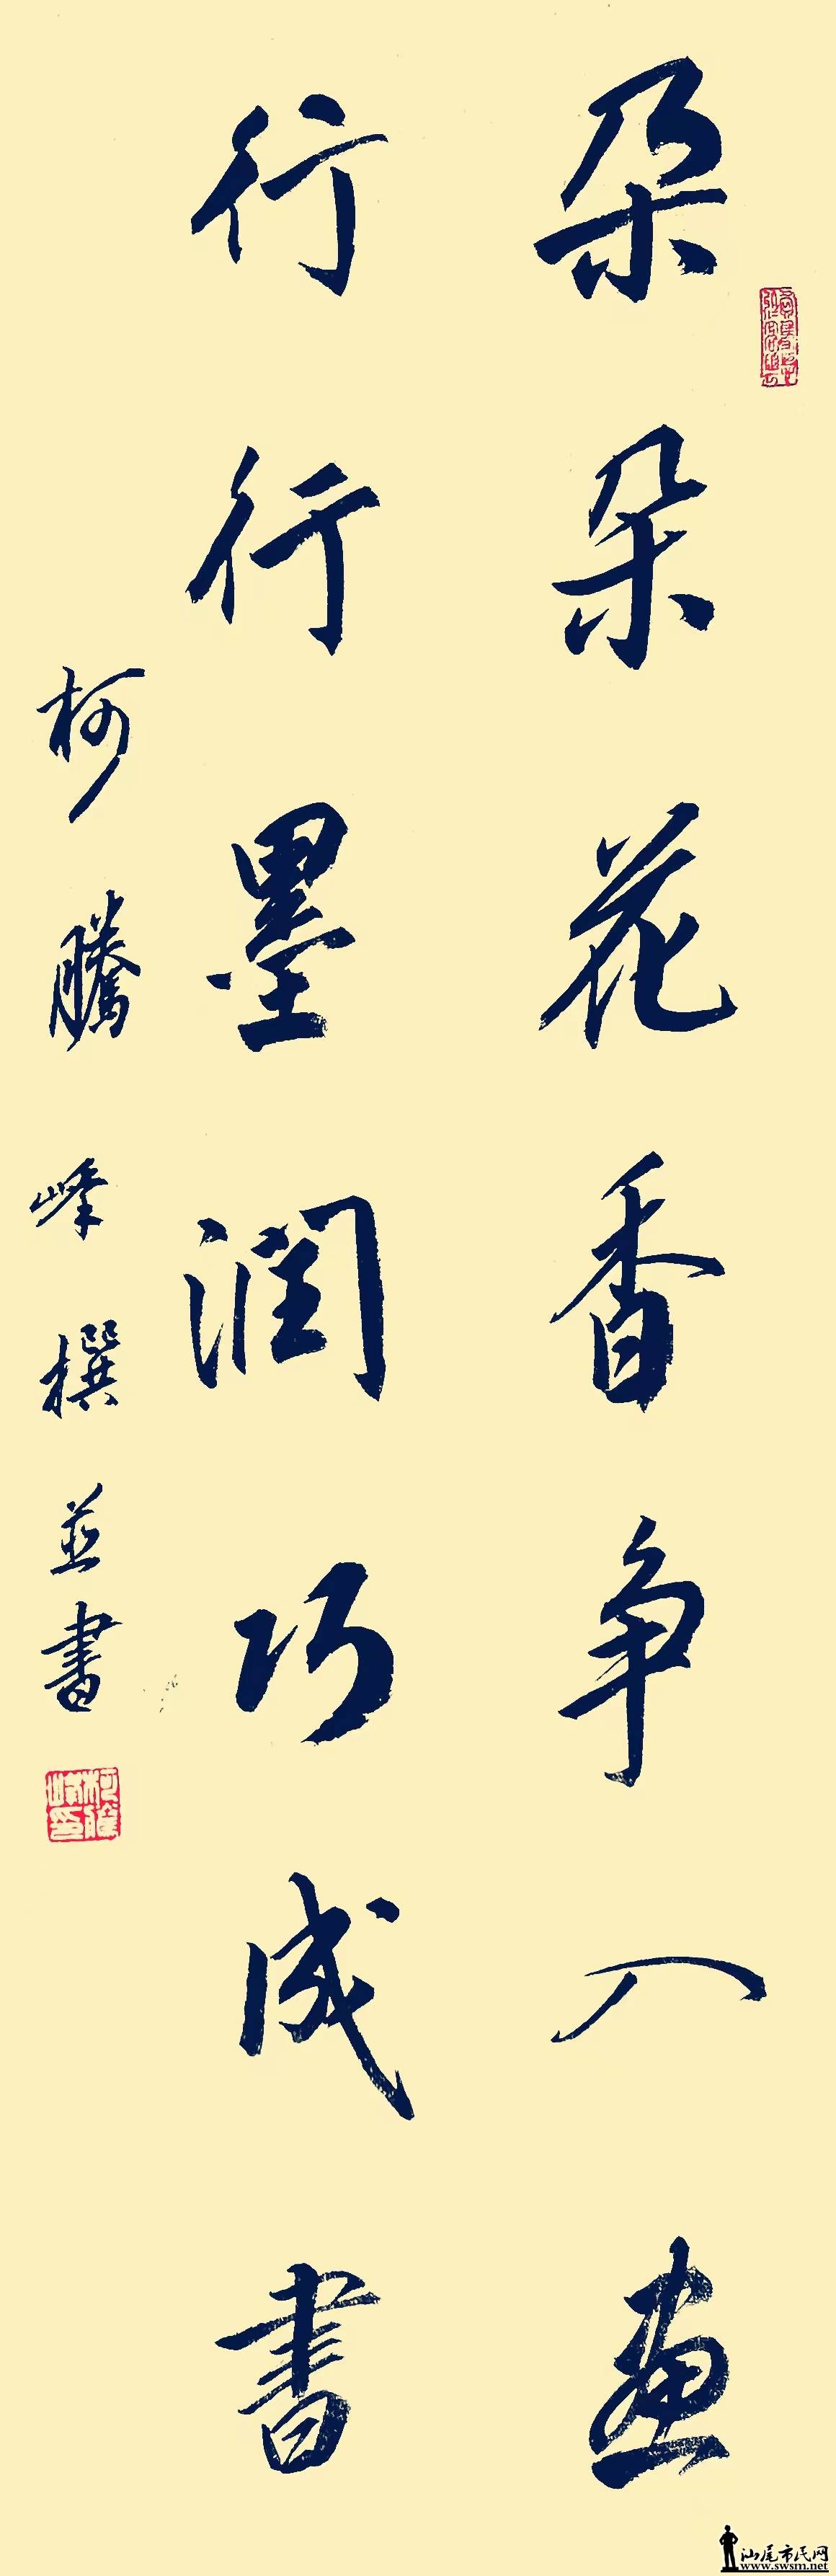 朵朵花香争入画
行行墨润巧成書
柯騰峰撰並書
汕尾市民网
www.swsm.net